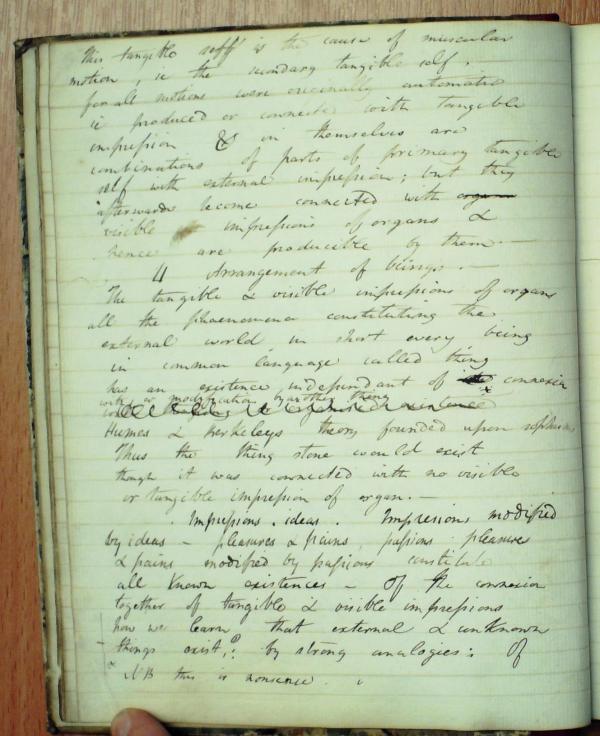 This tangible self is the cause of muscular
motion, ie the secondary tangible self.
for all motions were originally automatic
ie produced or connected with tangible
impression & in themselves are
combinations of parts of primary tangible
self with external impression; but they
afterwards become connected with organ
visible impressions of organs &
hence are producible by them
4 Arrangement of beings.
The tangible & visible impressions of organs
all the phaenomena constituting the
external world, in short every being
in common language called thing
has an existence independant of connexion
with or modification by another thing
Humes & Berkeleys theory founded upon sophisms
Thus the thing stone would exist
though it was connected with no visible
or tangible impression of organ.—
Impressions. ideas. Impressions modified
by ideas – pleasures & pains, passions pleasures
& pains modified by passions constitute
all known existences – Of the connexion
together of tangible & visible impressions
how we learn that external & unknown
things exist,? by strong analogies: Of
x NB this is nonsense.